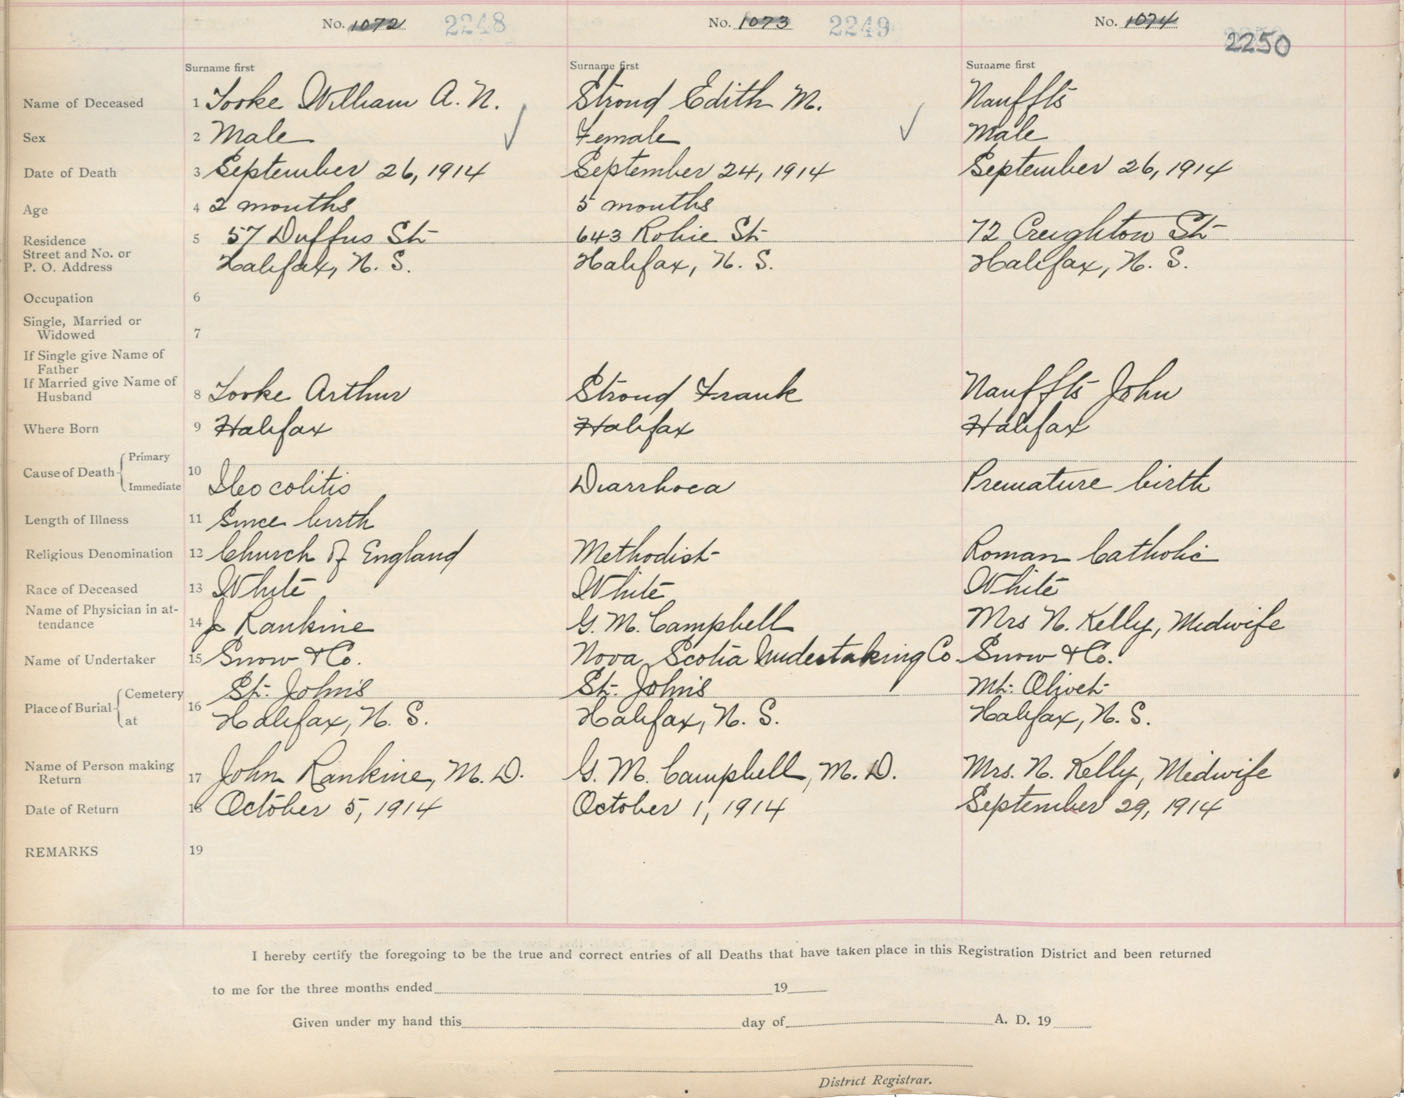 No. 1072 2248 No. 1073 2249 No. 1074 2250
Surname first Surname first Surname first
Name of Deceased 1 Tooke William A. N. Stroud Edith M. Nauffts
Sex 2 Male Female Male
Date of Death 3 September 26, 1914 September 24, 1914 September 26, 1914
Age 4 2 months 5 months
Residence 5 57 Duffus St. 643 Robie St. 72 Creighton St.
Street and No. or
P. O. Address Halifax, N. S. Halifax, N. S. Halifax, N. S.
Occupation 6
Single, Married or
Widowed 7
If Single give Name of
Father
If Married give Name of
Husband 8 Tooke Arthur Stroud Frank Nauffts John
Where Born 9 Halifax Halifax Halifax
Cause of Death Primary
10
Immediate Ileocolitis Diarrhoea Premature birth
Length of Illness 11 Since birth
Religious Denomination 12 Church of England Methodist Roman Catholic
Race of Deceased 13 White White White
Name of Physician in at-
tendance 14 J Rankine G. M. Campbell Mrs N. Kelly, Midwife
Name of Undertaker 15 Snow & Co. Nova Scotia Undertaking Co. Snow & Co.
Place of Burial Cemetery St. John's St. John's Mt. Olivet
16
at Halifax, N. S. Halifax, N. S. Halifax, N. S.
Name of Person making
Return 17 John Rankine, M. D. G. M. Campbell, M. D. Mrs. N. Kelly, Midwife
Date of Return 18 October 5, 1914 October 1, 1914 September 29, 1914
REMARKS 19
I hereby certify the foregoing to be the true and correct entries of all Deaths that have taken place in this Registration District and been returned
to me for the three months ended 19
Given under my hand this day of A. D. 19
District Registrar.